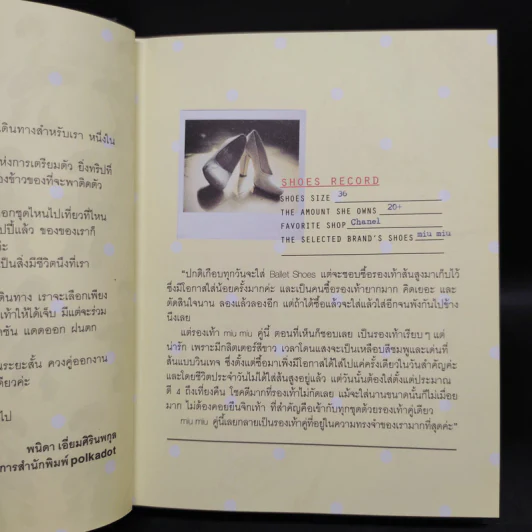 เดินทางสำหรับเรา หนึ่งใน
ห่งการเตรียมตัว ยิ่งทริปที่
องข้าวของที่จะพาติดตัว
อกชุดไหนไปเที่ยวที่ไหน
ปปีแล้ว ของของเราก็
ค่ะ
เป็นสิ่งมีชีวิตนึงที่เรา
ดินทาง เราจะเลือกเพียง
ทำให้ได้เจ็บ มีแต่จะร่วม
ตชัน แดดออก ฝนตก
นระยะสั้น ควงคู่ออกงาน
ดียวค่ะ
ไป
พนิดา เอี่ยมศิรินพกุล
การสำนักพิมพ์ polkadot
SHOES RECORD
SHOES SIZE 36
THE AMOUNT SHE OWNS 20+
FAVORITE SHOP Chanel
THE SELECTED BRAND'S SHOES miu miu
"ปกติเกือบทุกวันจะใส่ Ballet Shoes แต่จะชอบซื้อรองเท้าส้นสูงมาเก็บไว้
ซึ่งมีโอกาสใส่น้อยครั้งมากค่ะ และเป็นคนซื้อรองเท้ายากมาก คิดเยอะ และ
ตัดสินใจนาน ลองแล้วลองอีก แต่ถ้าได้ซื้อแล้วจะใส่แล้วใส่อีกจนพังกันไปข้าง
นึงเลย
แต่รองเท้า miu miu คู่นี้ ตอนที่เห็นก็ชอบเลย เป็นรองเท้าเรียบๆ แต่
น่ารัก เพราะมีกลิตเตอร์สีขาว เวลาโดนแสงจะเป็นเหลือบสีชมพูและเด่นที่
ส้นแบบวินเทจ ซึ่งตั้งแต่ซื้อมาเพิ่งมีโอกาสได้ใส่ไปแค่ครั้งเดียวในวันสำคัญค่ะ
และโดยชีวิตประจำวันไม่ได้ใส่ส้นสูงอยู่แล้ว แต่วันนั้นต้องใส่ตั้งแต่ประมาณ
ตี 4 ถึงเที่ยงคืน โชคดีมากที่รองเท้าไม่กัดเลย แม้จะใส่นานขนาดนั้นก็ไม่เมื่อย
มาก ไม่ต้องคอยยืนจิกเท้า ที่สำคัญคือเข้ากับทุกชุดด้วยรองเท้าคู่เดียว
miu miu คู่นี้เลยกลายเป็นรองเท้าคู่ที่อยู่ในความทรงจำของเรามากที่สุดค่ะ"